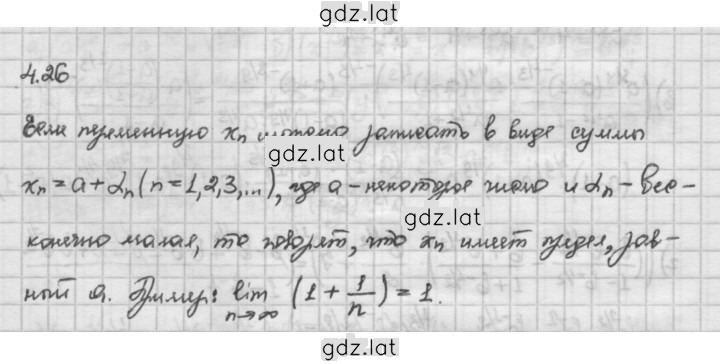 gdz.lat
4.26
Если переменную xₙ можно записать в виде суммы
gdz.lat
xₙ = a + αₙ (n = 1, 2, 3, ...), где a - некоторое число и αₙ - бес-
gdz.lat
конечно малая, то говорят, что xₙ имеет предел, рав-
ный a. Пример: lim n→∞ (1 + 1/n) = 1.
gdz.lat